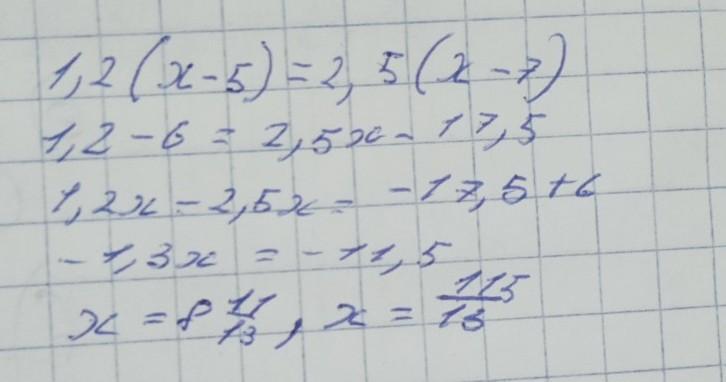 1,2(x-5)=2,5(x-7)
1,2-6=2,5x-17,5
1,2x-2,5x=-17,5+6
-1,3x=-11,5
x=8 11/13, x=115/13